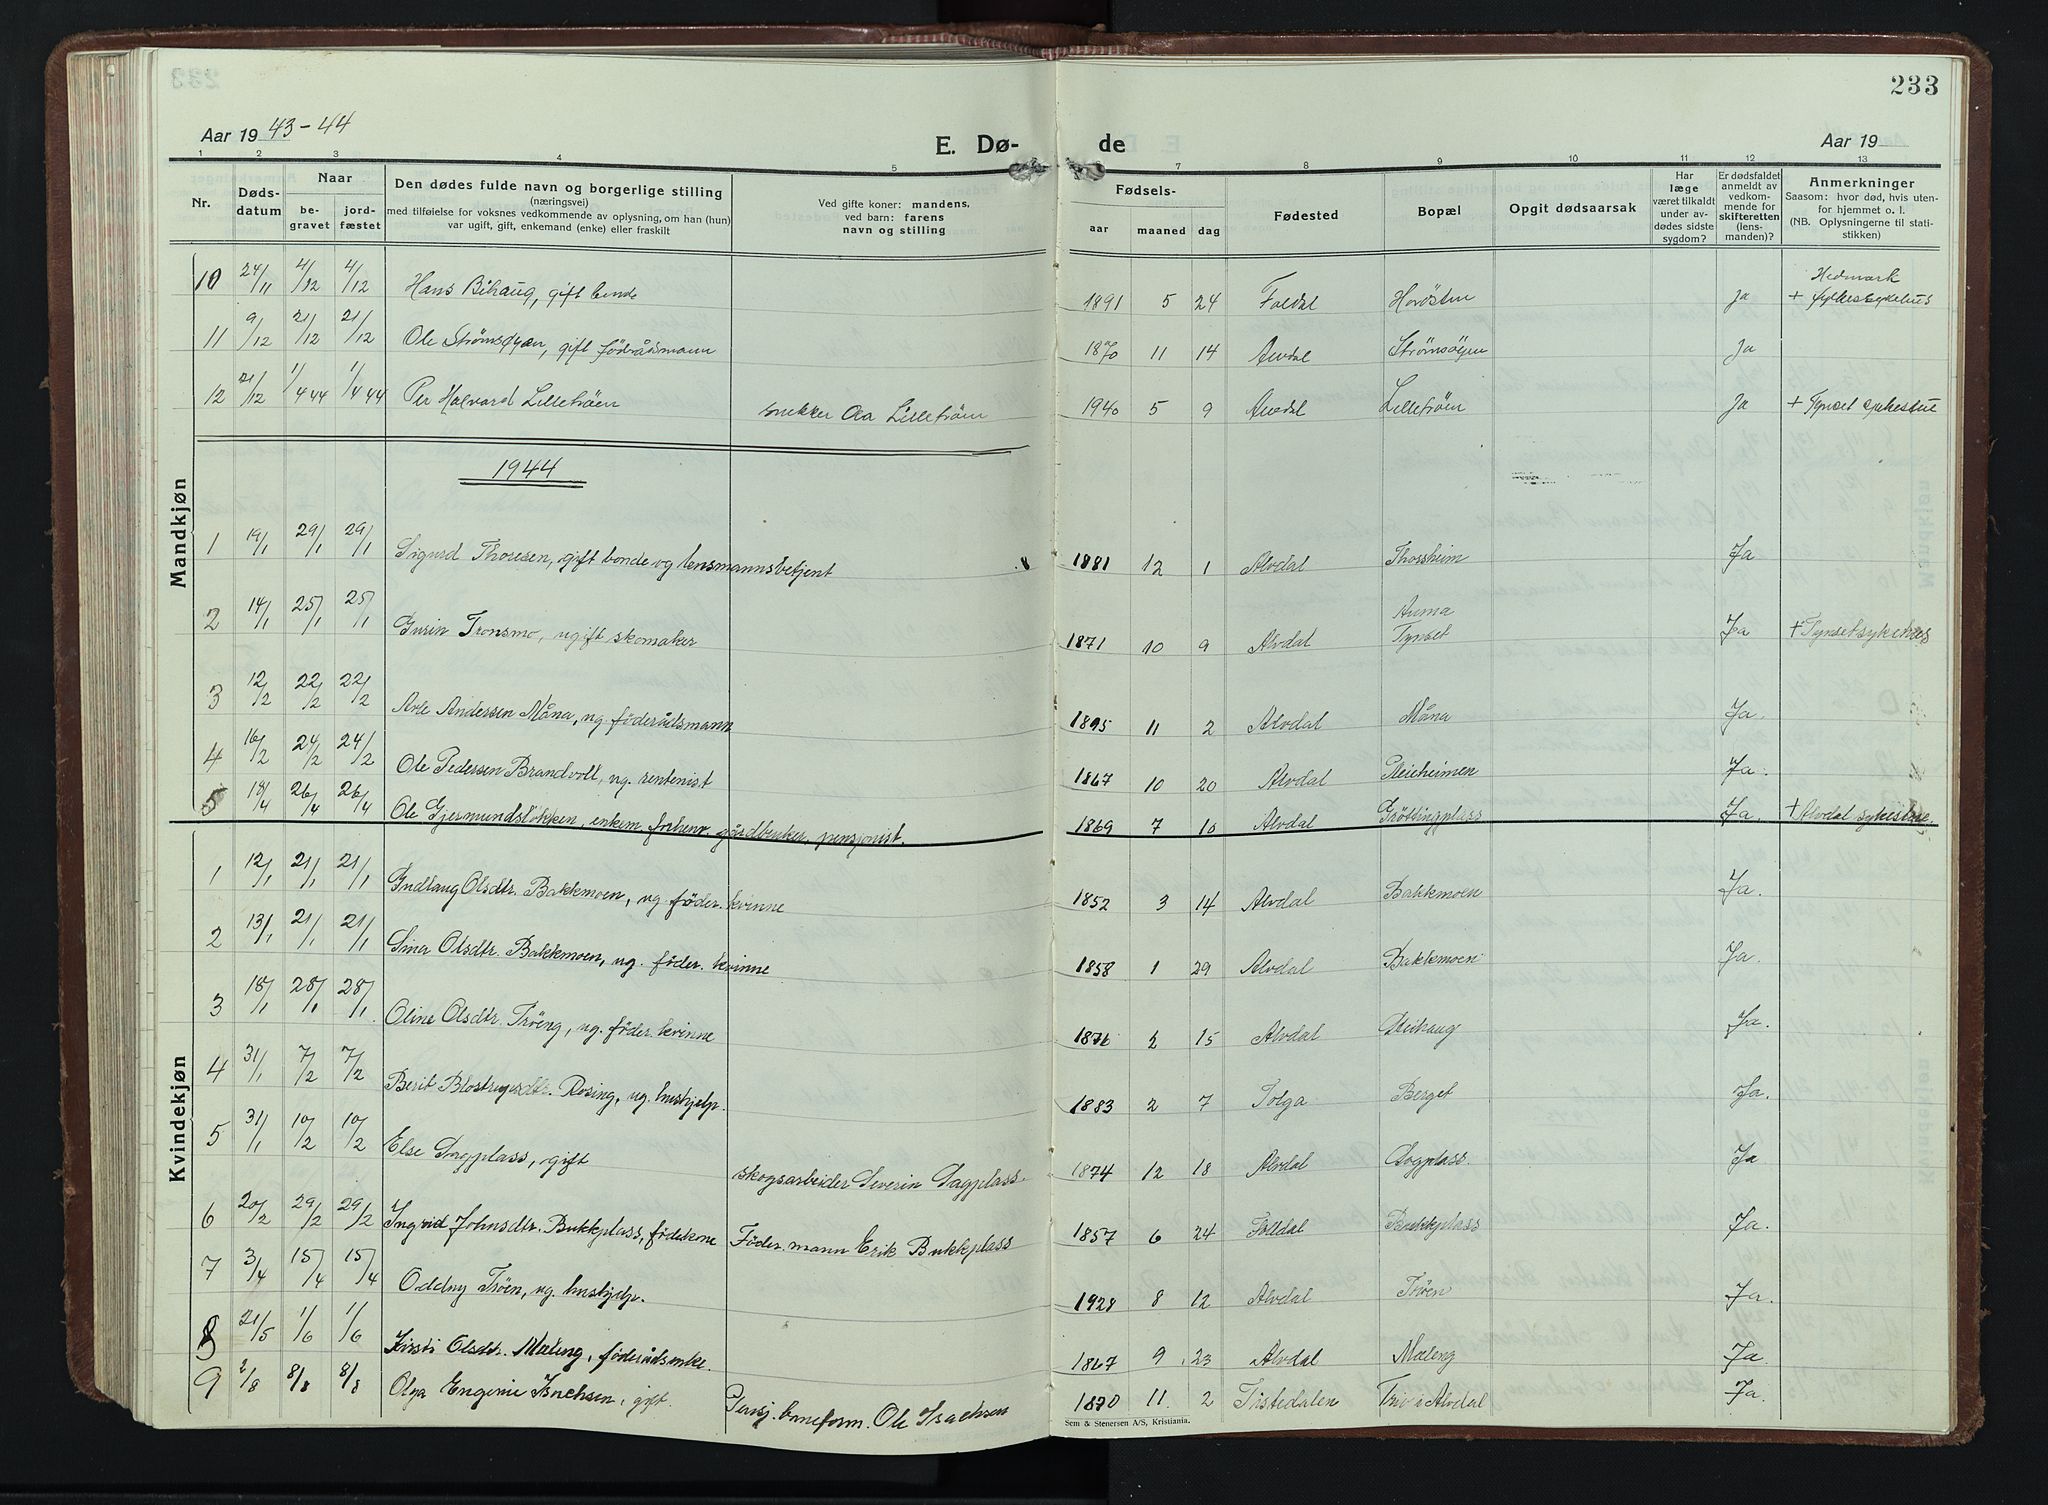 233
Aar 19 43-44
E. Dø-
de
Aar 19
1 2 3 4 5 6 7 8 9 10 11 12 13
Nr.
Døds-
datum
Naar
be-
gravet
jord-
fæstet
Den dødes fulde navn og borgerlige stilling
(næringsvei)
med tilføielse for voksnes vedkommende av oplysning, om han (hun)
var ugift, gift, enkemand (enke) eller fraskilt
Ved gifte koner: mandens,
ved barn: farens
navn og stilling
Fødsels-
aar maaned dag
Fødested
Bopæl
Opgit dødsaarsak
Har
læge
været tilkaldt
under av-
dødes sidste
sygdom?
Er dødsfaldet
anmeldt av
vedkom-
mende for
skifteretten
(lens-
manden)?
Anmerkninger
Saasom: hvor død, hvis uten-
for hjemmet o. l.
(NB. Oplysningerne til stati-
stikken)
Mandkjøn
10 24/11 4/12 4/12 Hans Bihaug, gift bonde 1891 5 24 Foldal Ja Hedmark
+ fylkessykehus
11 9/12 21/12 21/12 Ole Strømsøyen, gift föderådsmann 1870 11 14 Alvdal Strømsøyen Ja
12 21/12 1/4 44 1/4 44 Per Halvard Lilletrøen snekker Ola Lilletrøen 1940 5 9 Alvdal Lilletrøen Ja + Tynset sykestue
1944
1 19/1 29/1 29/1 Sigurd Thoresen, gift bonde og lensmannsbetjent 1881 12 1 Alvdal Thorsheim Ja
2 14/1 25/1 25/1 Tronsmo, ugift skomaker 1871 10 9 Alvdal Auma
Tynset Ja + Tynset sykehus
3 12/2 22/2 22/2 Andersen Måna, ug. föderådsmann 1895 11 2 Alvdal Måna Ja.
4 16/2 24/2 24/2 Ole Pedersen Brandvoll, ug. rentenist 1867 10 20 Alvdal Ja.
5 18/4 26/4 26/4 Ole Gjermundslokken, enkem. forhenv. gårdbruker, pensjonist. 1869 7 10 Alvdal Grøttingplass Ja. + Alvdal sykestue.
Kvindekjøn
1 12/1 21/1 21/1 Gudlaug Olsdtr. Bakkmoen, ug. föder. kvinne 1852 3 14 Alvdal Bakkmoen Ja.
2 13/1 21/1 21/1 Olsdtr. Bakkmoen, ug. föder. kvinne 1858 1 29 Alvdal Bakkmoen Ja.
3 18/1 28/1 28/1 Oline Olsdtr. Trøeng, ug. föder. kvinne 1876 2 15 Alvdal Ja.
4 31/1 7/2 7/2 Berit Rosing, ug. hushjelp. 1883 2 7 Tolga Berget Ja.
5 31/1 10/2 10/2 Else Dagplass, gift skogsarbeider Severin Dagplass. 1874 12 18 Alvdal Dagplass. Ja
6 20/2 29/2 29/2 Ingrid Johnsdtr. Bukkplass, föderkone Föder. mann Erik Bukkplass 1857 6 24 Folldal Bukkplass Ja.
7 3/4 15/4 15/4 Oddny Trøen, ug. hushjelp. 1928 8 12 Alvdal Trøen Ja.
8 21/5 1/6 1/6 Kirsti Olsdtr. Mæleng, föderådsenke. 1867 9 23 Alvdal Mæleng Ja.
9 2/8 8/8 8/8 Olga Eugenie Isachsen, gift. Pensj. baneform. Ole Isachsen 1870 11 2 Tistedalen i Alvdal Ja.
Sem & Stenersen A/S, Kristiania.